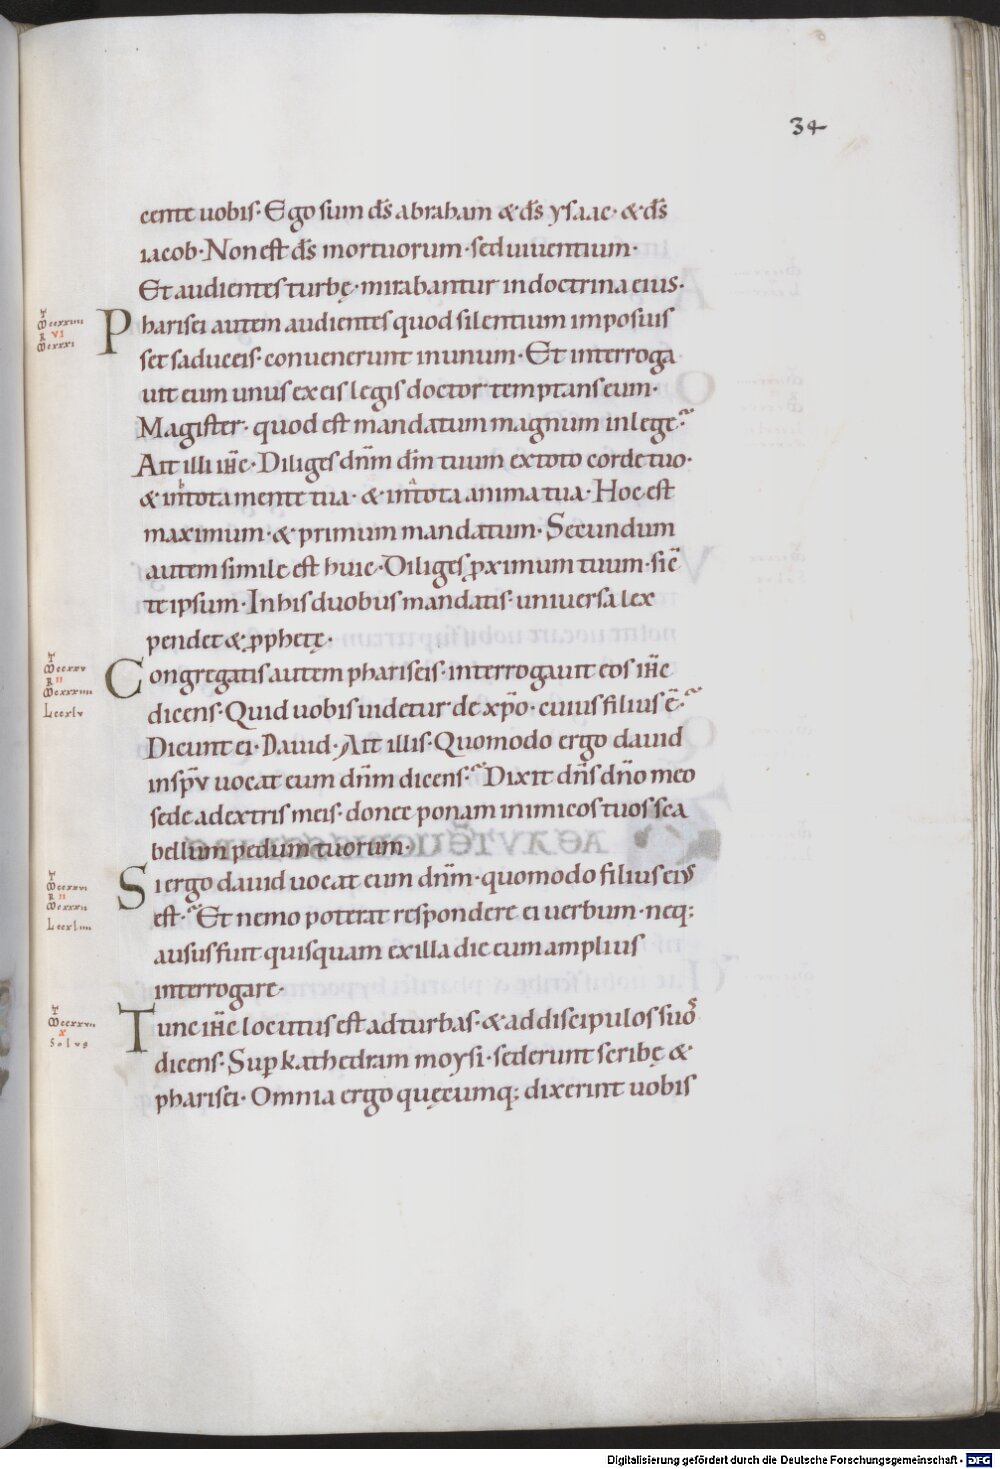 34
cente uobis· Ego sum d̄s abraham & d̄s ysaac· & d̄s
iacob· Non est d̄s mortuorum· sed uiuentium·
Et audientes turbę· mirabantur in doctrina eius·
Pharisei autem audientes quod silentium imposuis
set saduceis· conuenerunt in unum· Et interroga
uit eum unus ex eis legis doctor temptans eum·
Magister· quod est mandatum magnum in lege?
Ait illi ih̄c· Diliges dn̄m dm̄ tuum ex toto corde tuo·
& in tota mente tua· & in tota anima tua· Hoc est
maximum· & primum mandatum· Secundum
autem simile est huic· Diliges ꝓximum tuum· sic̄
te ipsum· In his duobus mandatis· uniuersa lex
pendet & ꝓphetę·
Congregatis autem phariseis· interrogauit eos ih̄c
dicens· Quid uobis uidetur de xp̄o· cuius filius ē?
Dicunt ei· Dauid· Ait illis· Quomodo ergo dauid
in sp̄u uocat eum dn̄m dicens? Dixit dn̄s dn̄o meo
sede a dextris meis· donec ponam inimicos tuos sca
bellum pedum tuorum·
Si ergo dauid uocat eum dn̄m· quomodo filius eius
est? Et nemo poterat respondere ei uerbum· neq;
ausus fuit quisquam ex illa die eum amplius
interrogare·
Tunc ih̄c locutus est ad turbas· & ad discipulos suos
dicens· Suꝑ kathedram moysi· sederunt scribę &
pharisei· Omnia ergo quęcumq; dixerint uobis
Digitalisierung gefördert durch die Deutsche Forschungsgemeinschaft - DFG